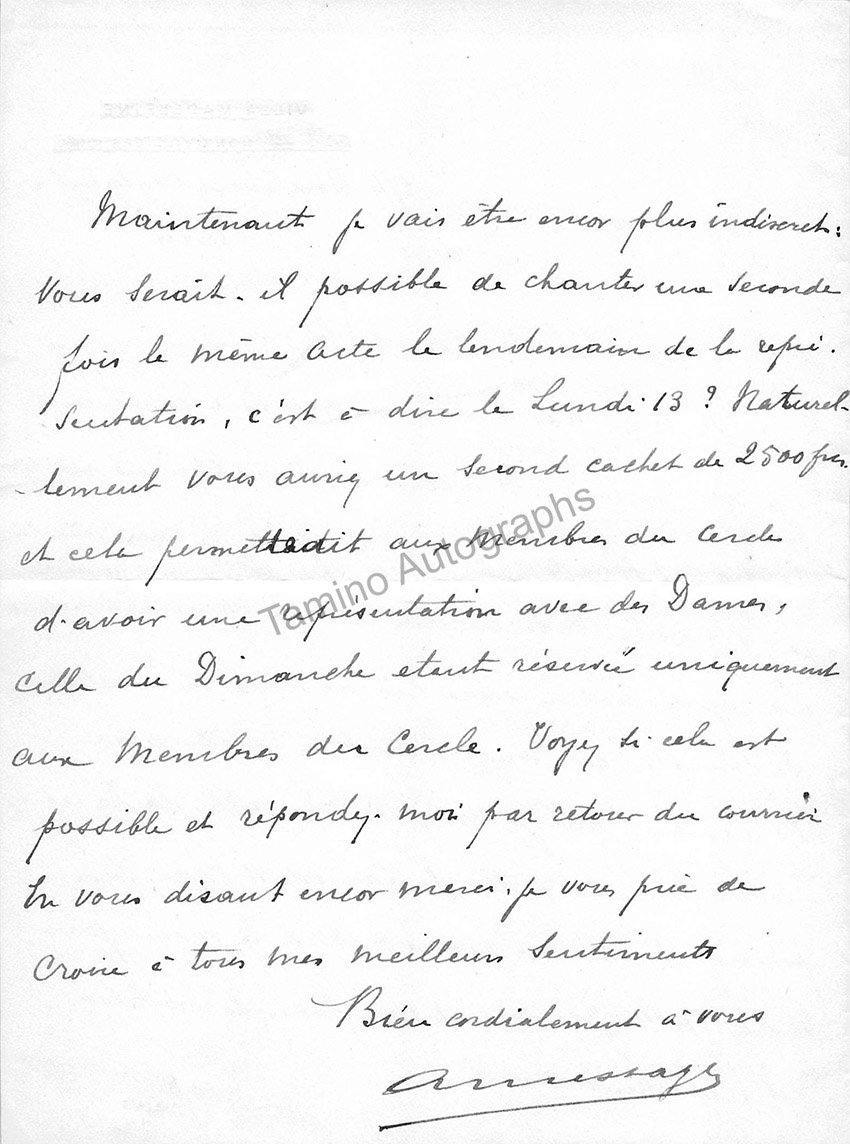 Maintenant je vais être encor plus indiscret:
Vous serait-il possible de chanter une seconde
fois le même acte le lendemain de la repré-
sentation, c'est à dire le Lundi 13? Naturel-
-lement vous auriez un second cachet de 2500 frs.
et cela permettait aux Membres du Cercle
d'avoir une représentation avec des Dames,
celle du Dimanche etant réservée uniquement
aux Membres du Cercle. Voyez si cela est
possible et répondez-moi par retour du courrier
En vous disant encor merci, je vous prie de
croire à tous mes meilleurs sentiments
Bien cordialement à vous
Tamino Autographs